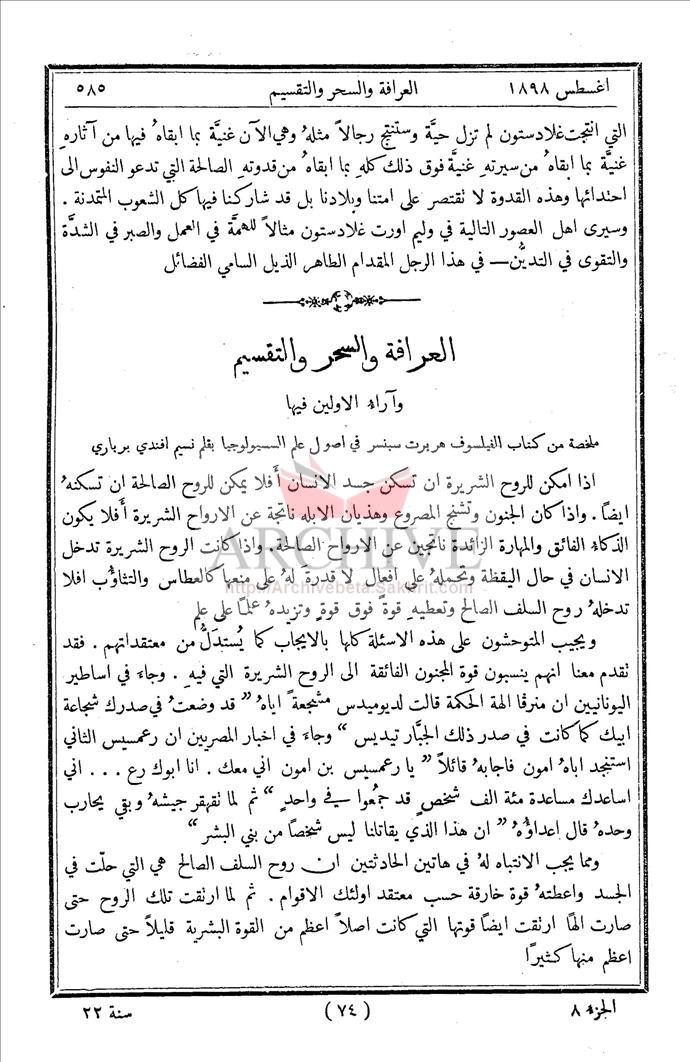 اغسطس ١٨٩٨ العرافة والسحر والتقسيم ٥٨٥
التي انتجت غلادستون لم تزل حيَّة وستنتج رجالاً مثلهُ وهي الآن غنيَّة بما ابقاهُ فيها من آثارهِ
غنيَّة بما ابقاهُ من سيرتهِ غنيَّة فوق ذلك كلهِ بما ابقاهُ من قدوتهِ الصالحة التي تدعو النفوس الى
احتذائها وهذه القدوة لا تقتصر على امتنا وبلادنا بل قد شاركنا فيها كل الشعوب المتمدنة .
وسيرى اهل العصور التالية في وليم اورت غلادستون مثالاً للهمَّة في العمل والصبر في الشدَّة
والتقوى في التديُّن — في هذا الرجل المقدام الطاهر الذيل السامي الفضائل
العرافة والسحر والتقسيم
وآراء الاولين فيها
ملخصة من كتاب الفيلسوف هربرت سبنسر في اصول علم السسيولوجيا بقلم نسيم افندي برباري
اذا امكن للروح الشريرة ان تسكن جسد الانسان أَفلا يمكن للروح الصالحة ان تسكنهُ
ايضاً . واذا كان الجنون وتشنج المصروع وهذيان الابله ناتجة عن الارواح الشريرة أَفلا يكون
الذكاء الفائق والمهارة الزائدة ناتجين عن الارواح الصالحة. واذا كانت الروح الشريرة تدخل
الانسان في حال اليقظة وتحملهُ على افعال لا قدرة لهُ على منعها كالعطاس والتثاؤب افلا
تدخلهُ روح السلف الصالح وتعطيهِ قوة فوق قوةٍ وتزيدهُ علماً على علم
ويجيب المتوحشون على هذه الاسئلة كلها بالايجاب كما يُستدَلُّ من معتقداتهم . فقد
نقدم معنا انهم ينسبون قوة المجنون الفائقة الى الروح الشريرة التي فيهِ . وجاءَ في اساطير
اليونانيين ان منرڤا الهة الحكمة قالت لديوميدس مشجعةً اياهُ " قد وضعتُ في صدرك شجاعة
ابيك كما كانت في صدر ذلك الجبَّار تيديس " وجاءَ في اخبار المصريين ان رعمسيس الثاني
استنجد اباهُ امون فاجابهُ قائلاً " يا رعمسيس بن امون اني معك . انا ابوك رع ... اني
اساعدك مساعدة مئة الف شخصٍ قد جمعُوا في واحدٍ " ثم لما نقهقر جيشهُ وبقي يحارب
وحدهُ قال اعداؤُهُ " ان هذا الذي يقاتلنا ليس شخصاً من بني البشر "
ومما يجب الانتباه لهُ في هاتين الحادثتين ان روح السلف الصالح هي التي حلَّت في
الجسد واعطتهُ قوة خارقة حسب معتقد اولئك الاقوام . ثم لما ارنقت تلك الروح حتى
صارت الهًا ارنقت ايضاً قوتها التي كانت اصلاً اعظم من القوة البشرية قليلاً حتى صارت
اعظم منها كثيرًا
الجزء ٨ ( ٧٤ ) سنة ٢٢
ARCHIVE
http://Archivebeta.Sakhrit.com